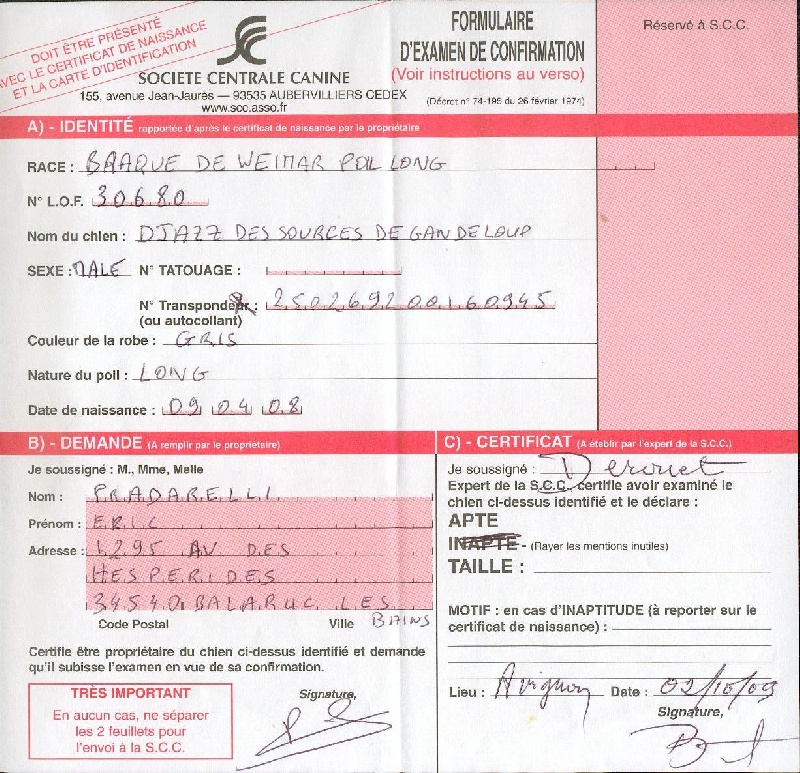 DOIT ÊTRE PRÉSENTÉ
AVEC LE CERTIFICAT DE NAISSANCE
ET LA CARTE D'IDENTIFICATION
SOCIETE CENTRALE CANINE
155, avenue Jean-Jaurès — 93535 AUBERVILLIERS CEDEX
www.scc.asso.fr
FORMULAIRE
D'EXAMEN DE CONFIRMATION
(Voir instructions au verso)
(Décret n° 74-195 du 26 février 1974)
Réservé à S.C.C.
A) - IDENTITÉ rapportée d'après le certificat de naissance par le propriétaire
RACE : BRAQUE DE WEIMAR POIL LONG
N° L.O.F. 30680
Nom du chien : DJAZZ DES SOURCES DE GANDELOUP
SEXE : MALE N° TATOUAGE :
N° Transpondeur : 250269200160945
(ou autocollant)
Couleur de la robe : GRIS
Nature du poil : LONG
Date de naissance : 09 04 08
B) - DEMANDE (A remplir par le propriétaire)
Je soussigné : M., Mme, Melle
Nom : PRADARELLI
Prénom : ERIC
Adresse : 1295 AV DES
HESPERIDES
34540 BALARUC LES
BAINS
Code Postal Ville
Certifie être propriétaire du chien ci-dessus identifié et demande
qu'il subisse l'examen en vue de sa confirmation.
TRÈS IMPORTANT
En aucun cas, ne séparer
les 2 feuillets pour
l'envoi à la S.C.C.
Signature,
C) - CERTIFICAT (A établir par l'expert de la S.C.C.)
Je soussigné :
Expert de la S.C.C. certifie avoir examiné le
chien ci-dessus identifié et le déclare :
APTE
INAPTE - (Rayer les mentions inutiles)
TAILLE :
MOTIF : en cas d'INAPTITUDE (à reporter sur le
certificat de naissance) :
Lieu : Avignon Date : 02/10/09
Signature,